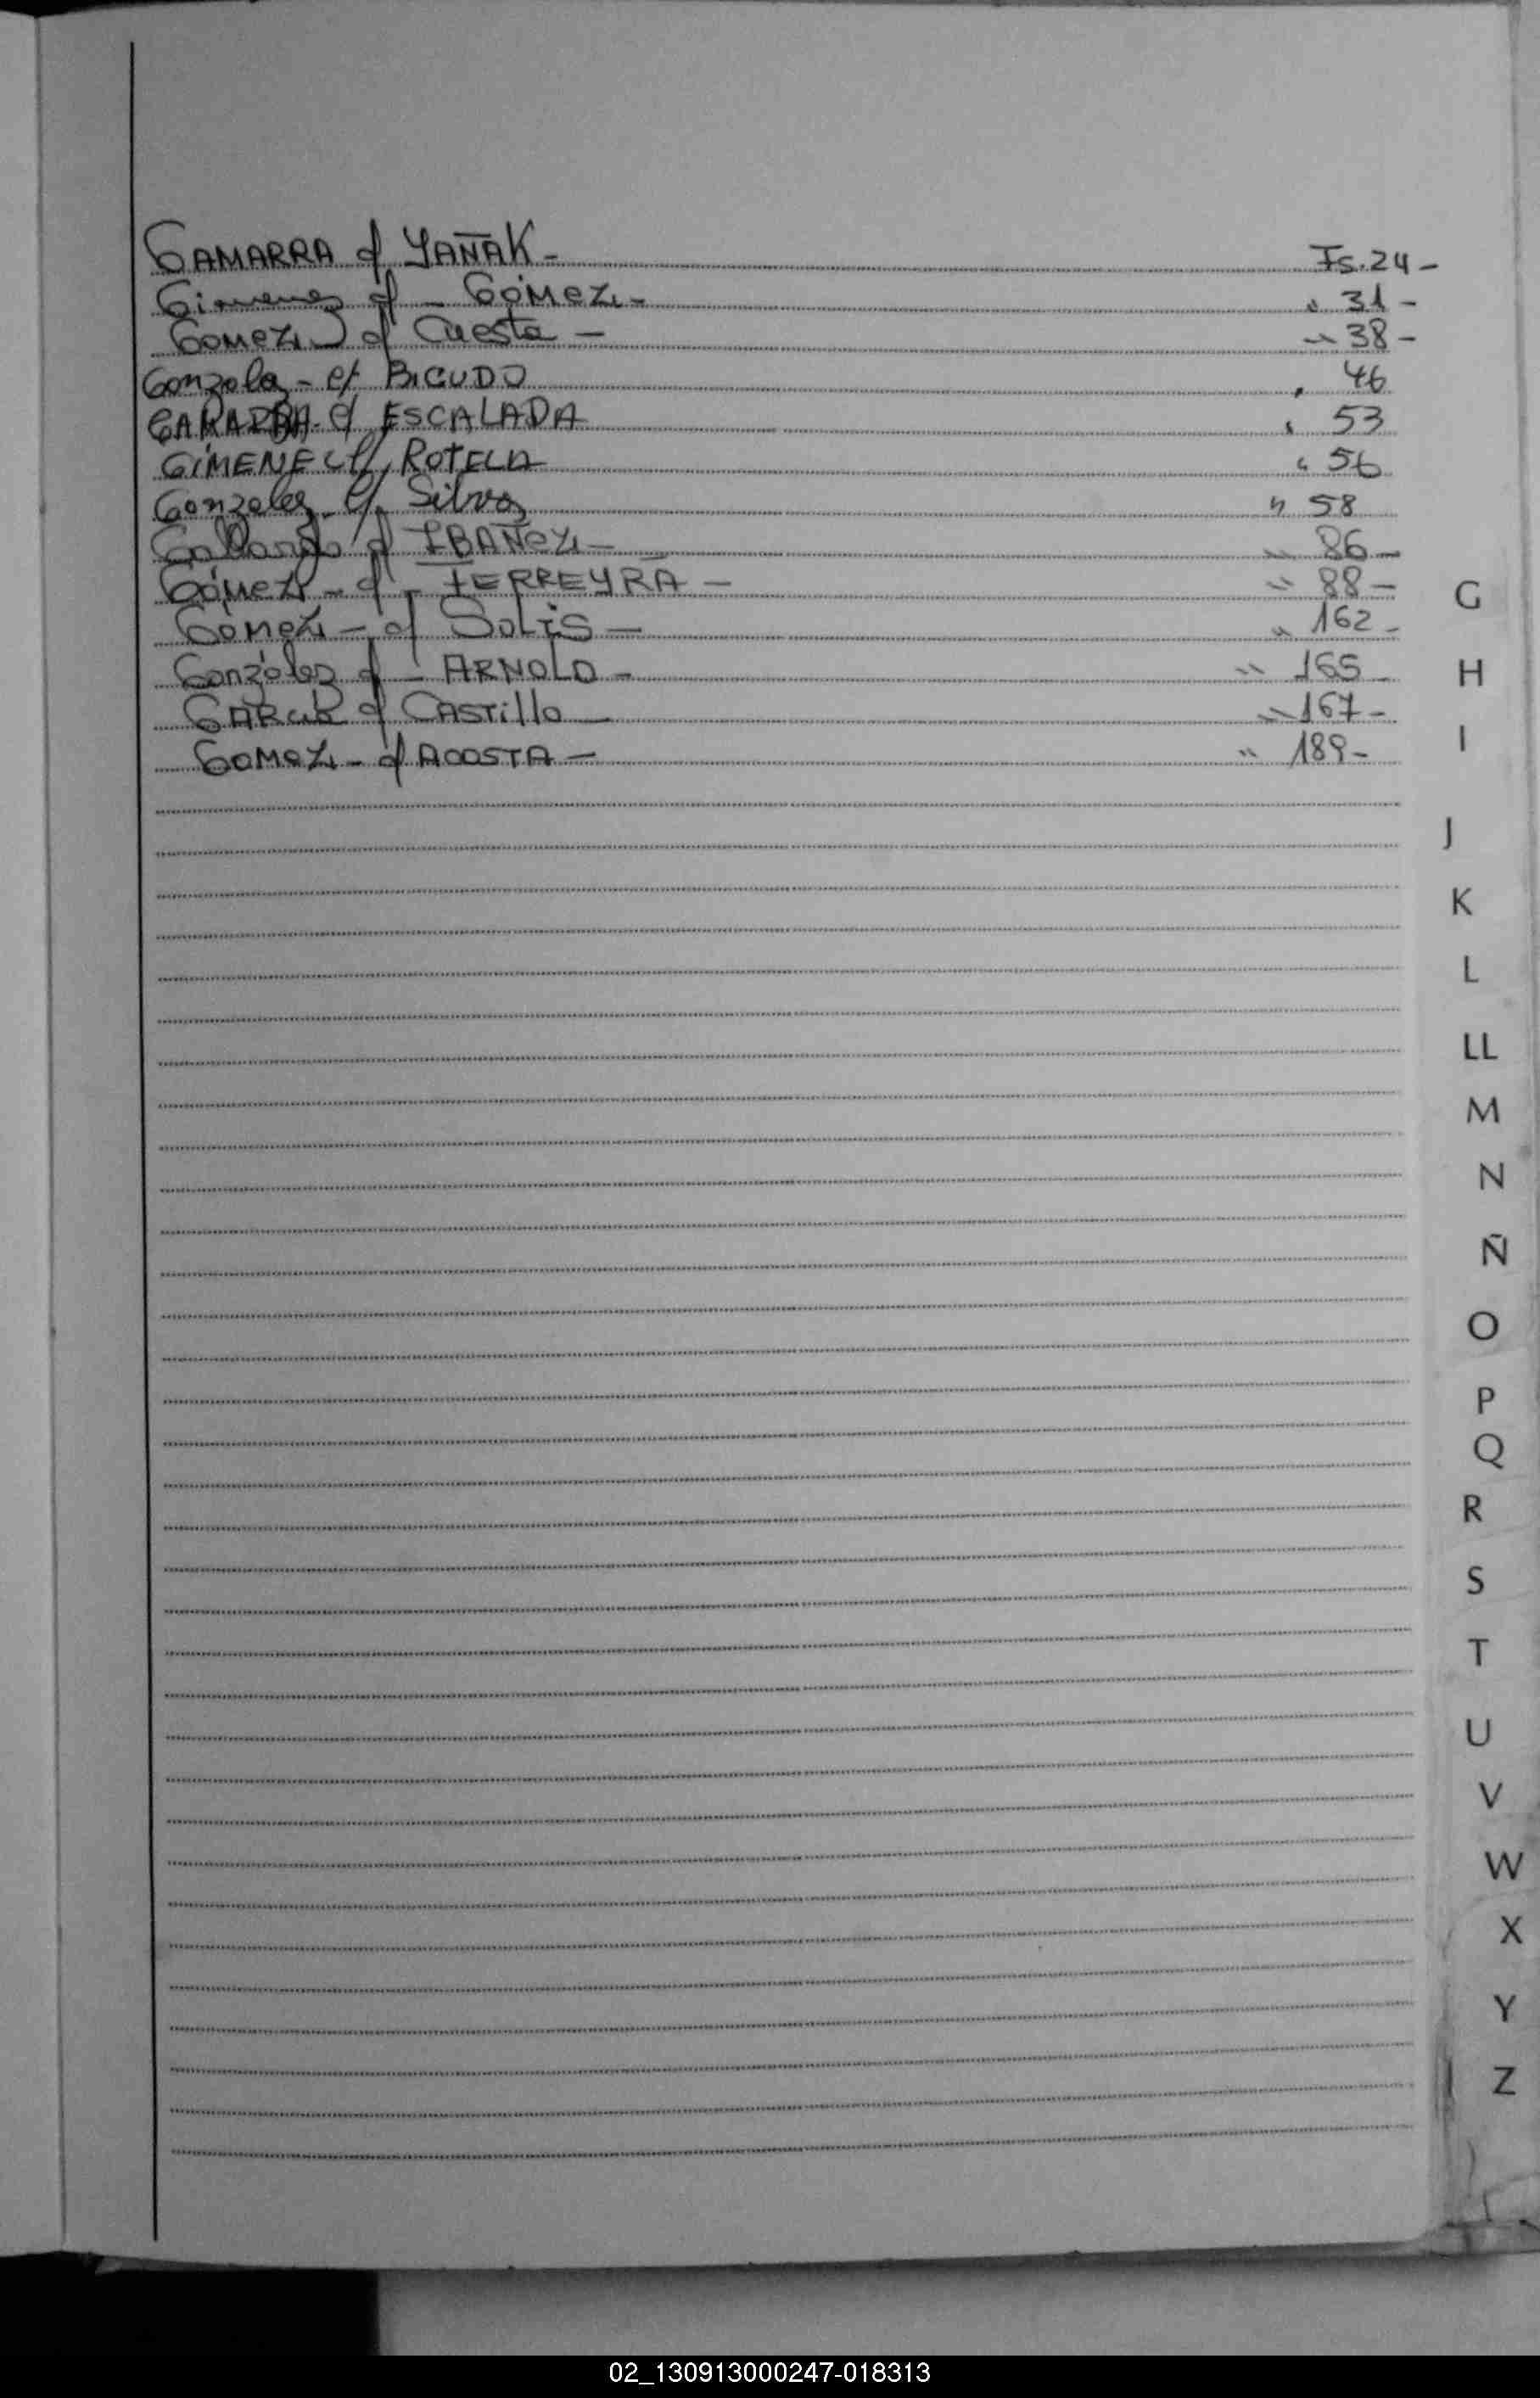 GAMARRA c/ YAÑAK - Fs. 24 -
Gimenez c/ - GÓMEZ - " 31 -
GOMEZ c/ Cuesta - " 38 -
Gonzalez - c/ BICUDO " 46
c/ ESCALADA " 53
GIMENEZ c/ ROTELA " 56
Gonzalez c/ Silva " 58
Gallardo c/ IBAÑEZ - " 86 -
GÓMEZ - c/ - FERREYRA - " 88 -
GÓMEZ - c/ SOLIS - " 162 -
González c/ - ARNOLD - " 165 -
GARCIA c/ CASTILLO - " 167 -
GOMEZ - c/ ACOSTA - " 189 -
G
H
I
J
K
L
LL
M
N
Ñ
O
P
Q
R
S
T
U
V
W
X
Y
Z
02_130913000247-018313